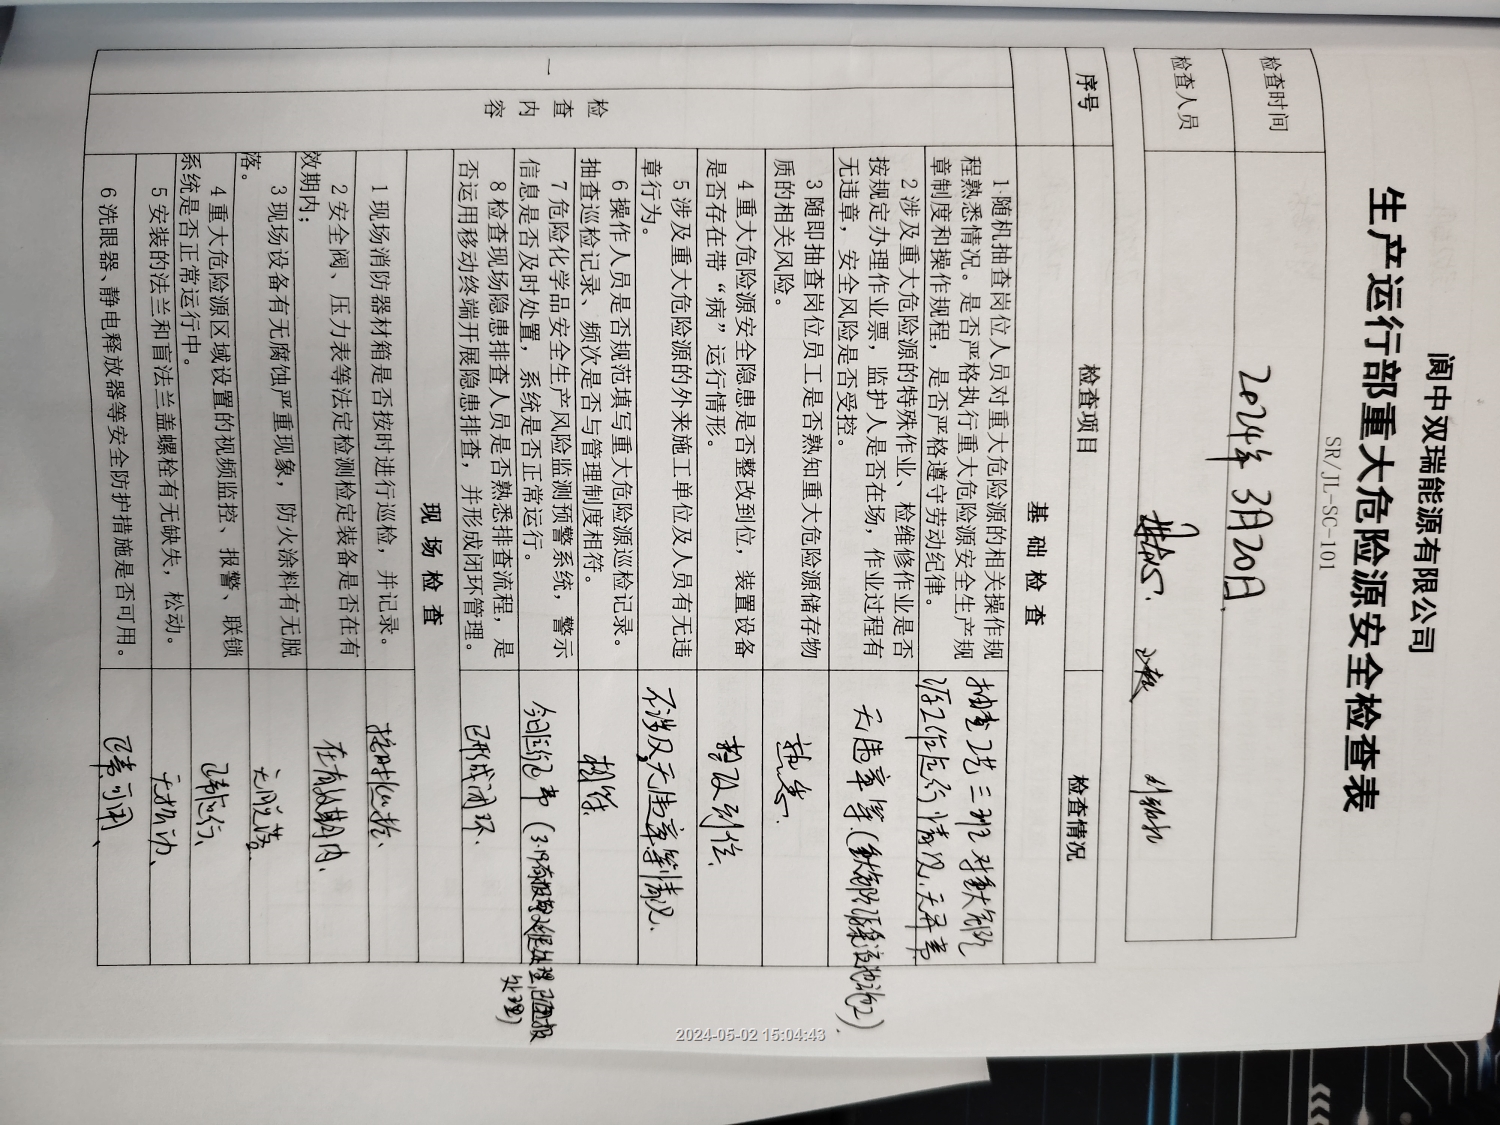 阆中双瑞能源有限公司
生产运行部重大危险源安全检查表
SR/JL-SC-101
检查时间
2024年3月20日
检查人员
序号
检查项目
检查情况
基础检查
一
检查内容
1 随机抽查岗位人员对重大危险源的相关操作规
程熟悉情况。是否严格执行重大危险源安全生产规
章制度和操作规程，是否严格遵守劳动纪律。
抽查工艺三班对重大危险
源工作运行情况，无异常
2 涉及重大危险源的特殊作业、检维修作业是否
按规定办理作业票，监护人是否在场，作业过程有
无违章，安全风险是否受控。
无违章等.
3 随即抽查岗位员工是否熟知重大危险源储存物
质的相关风险。
熟悉.
4 重大危险源安全隐患是否整改到位，装置设备
是否存在带“病”运行情形。
整改到位.
5 涉及重大危险源的外来施工单位及人员有无违
章行为。
不涉及,无违章等情况.
6 操作人员是否规范填写重大危险源巡检记录。
抽查巡检记录、频次是否与管理制度相符。
相符.
7 危险化学品安全生产风险监测预警系统，警示
信息是否及时处置，系统是否正常运行。
8 检查现场隐患排查人员是否熟悉排查流程，是
否运用移动终端开展隐患排查，并形成闭环管理。
已形成闭环.
现场检查
1 现场消防器材箱是否按时进行巡检，并记录。
按时巡检、
2 安全阀、压力表等法定检测检定装备是否在有
效期内；
在有效期内.
3 现场设备有无腐蚀严重现象，防火涂料有无脱
落。
无脱落.
4 重大危险源区域设置的视频监控、报警、联锁
系统是否正常运行中。
正常运行、
5 安装的法兰和盲法兰盖螺栓有无缺失，松动。
无松动、
6 洗眼器、静电释放器等安全防护措施是否可用。
正常可用、
2024-05-02 15:04:43